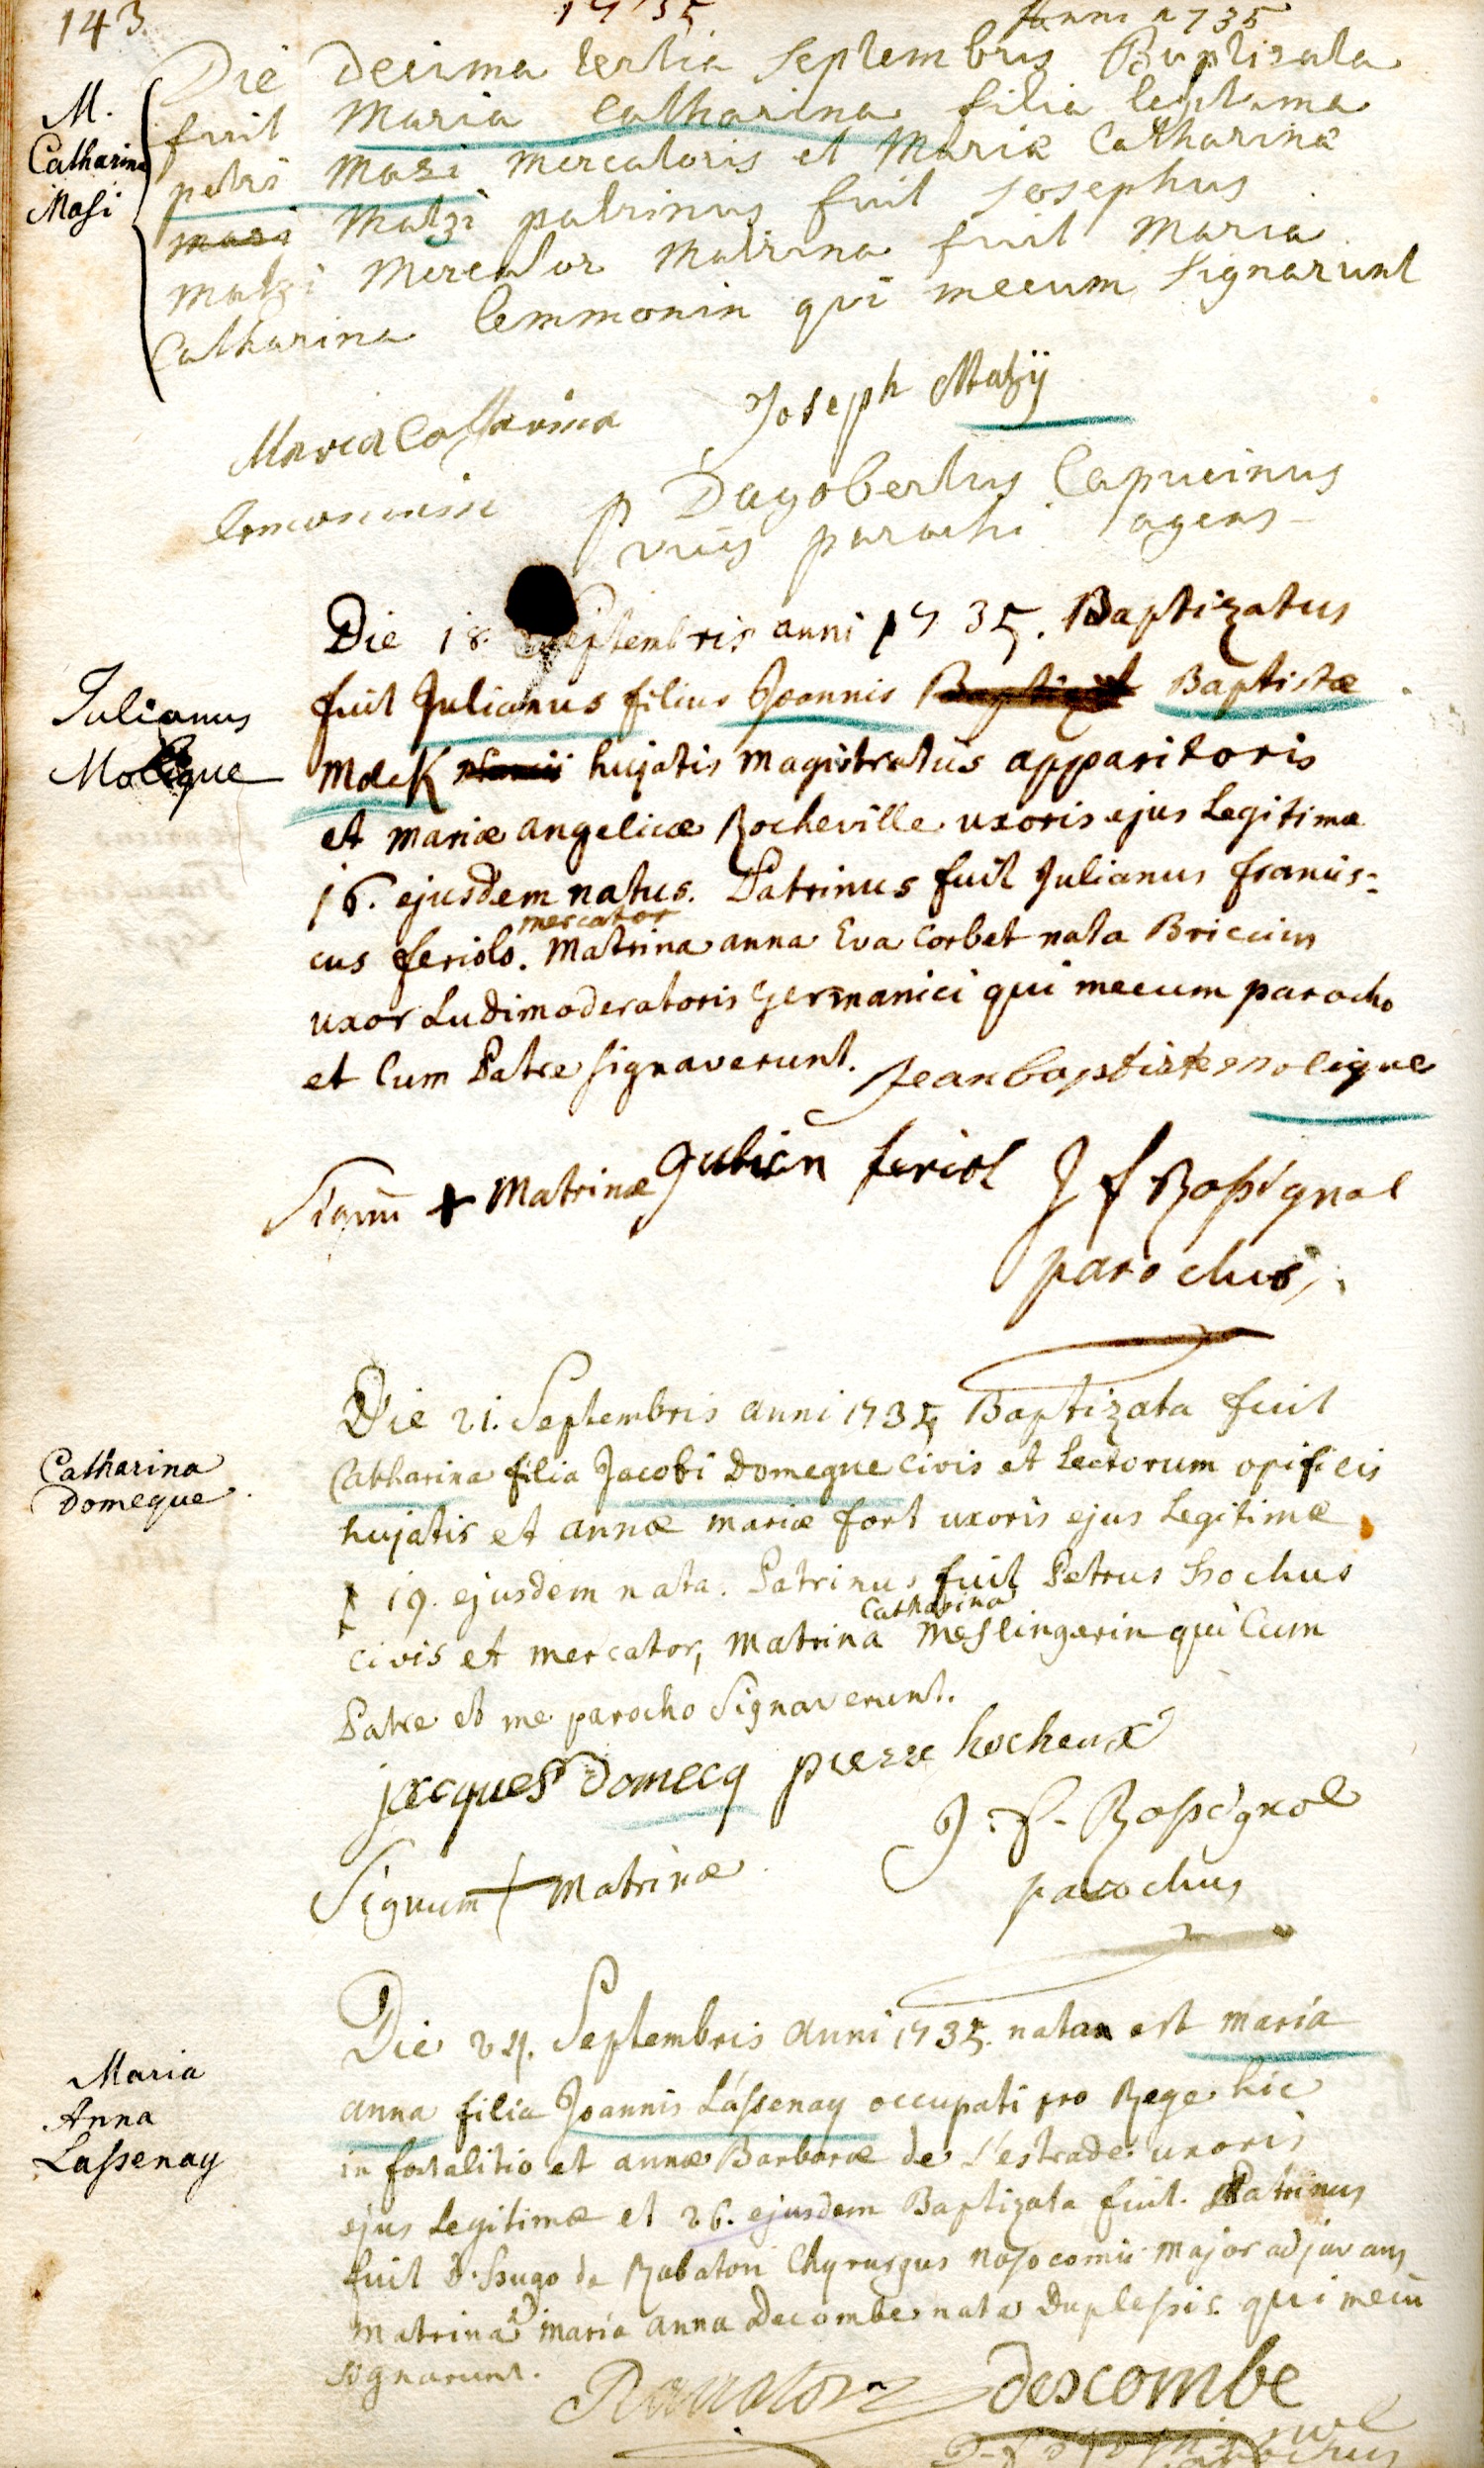 143.
1735
Anni 1735
Die Decima tertia Septembris Baptisata
M.
Catharina
Masi
fuit Maria Catharina filia legitima
petri Mazi mercatoris et Mariæ Catharinæ
Matzi patrinus fuit Josephus
Matzi Mercator Matrina fuit Maria
Catharina Cemmonin qui mecum signarunt
Joseph Matzij
Maria Catharina
p Dagobertus Capucinus
vices parochi agens
Die 18. Septembris anni 1735. Baptizatus
Julianus
Molique
fuit Julianus filius Joannis Baptistæ
Molek hujatis magistratus apparitoris
et mariæ angelicæ Rocheville uxoris ejus Legitimæ
16. ejusdem natus. Patrinus fuit Julianus francis=
mercator
cus feriolo. Matrina anna Eva Corbet nata Briccius
uxor Ludimoderatoris Germanici qui mecum parocho
et Cum Patre signaverunt. Jean baptiste molique
Signū + Matrinæ Gulien feriol J f Rossignol
parochus
Die 21. Septembris anni 1735 Baptizata fuit
Catharina
Domeque
Catharina filia Jacobi Domeque civis et Lectorum opificis
hujatis et annæ mariæ fort uxoris ejus Legitimæ
19. ejusdem nata. Patrinus fuit Petrus Hochus
Catharina
civis et mercator, Matrina Meslingerin qui Cum
Patre et me parocho Signaverunt.
jacques Domecq pierre hocheux
J. f. Rossignol
Signum + Matrinæ
parochus
Die 24. Septembris anni 1735. nata est maria
Maria
Anna
Lassenay
anna filia Joannis Lassenay occupati pro Rege hic
in fortalitio et annæ Barbaræ de L'estrade uxoris
ejus Legitimæ et 26. ejusdem Baptizata fuit. Patrinus
fuit D. Hugo de Rabaton Chyrurgus Nosocomii Major adjuvans
Matrina D. maria anna Decombe nata Duplessis qui mecū
signarunt.
descombe